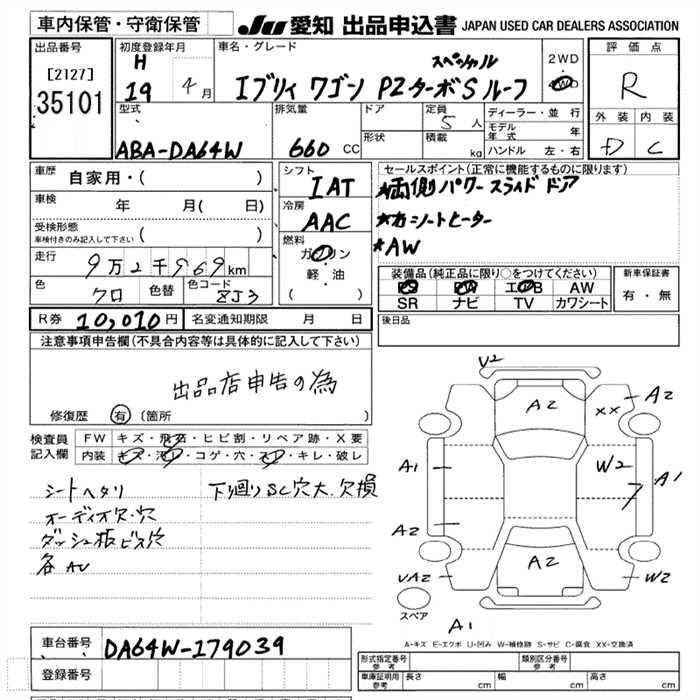 車内保管・守衛保管
JU 愛知 出品申込書 JAPAN USED CAR DEALERS ASSOCIATION
出品番号
[2127]
35101
初度登録年月
H
19 4月
車名・グレード
スペシャル
エブリィ ワゴン PZターボS ルーフ
2WD
4WD
評価点
R
外装 内装
D C
型式
ABA-DA64W
排気量
660 CC
ドア
形状
定員
5人
積載
kg
ディーラー・並行
モデル年式 年
ハンドル 左・右
車歴
自家用・( )
車検
年 月( 日)
受検形態
車検付きのみ記入して下さい ( )
走行
9万2千969km
色
クロ
色替
色コード
ZJ3
シフト
IAT
冷房
AAC
燃料
ガソリン
軽・油
( )
セールスポイント(正常に機能するものに限ります)
*両側パワースライドドア
*カシートヒーター
*AW
装備品(純正品に限り○をつけてください)
PS PW エアB AW
SR ナビ TV カワシート
新車保証書
有・無
R券 10,010円 名変通知期限 月 日
後日品
注意事項申告欄(不具合内容等は具体的に記入して下さい)
出品店申告の為
修復歴 有 (箇所 )
検査員
記入欄
FW キズ・飛石・ヒビ割・リペア跡・X要
内装 キズ・汚レ・コゲ・穴・スレ・キレ・破レ
シートヘタリ
オーディオ欠・穴
ダッシュ板ビス穴
各AU
下廻りSC穴大.欠損
V2
A2
A2
XX
A1
W2
A1
A2
A2
UA2
W2
スペア
A1
A-キズ E-エクボ U-凹み W-補修跡 S-サビ C-腐食 XX-交換済
車台番号
DA64W-179039
登録番号
形式指定番号
参考
類別区分番号
参考
車庫証明用
参考
長さ cm 幅 cm 高さ cm